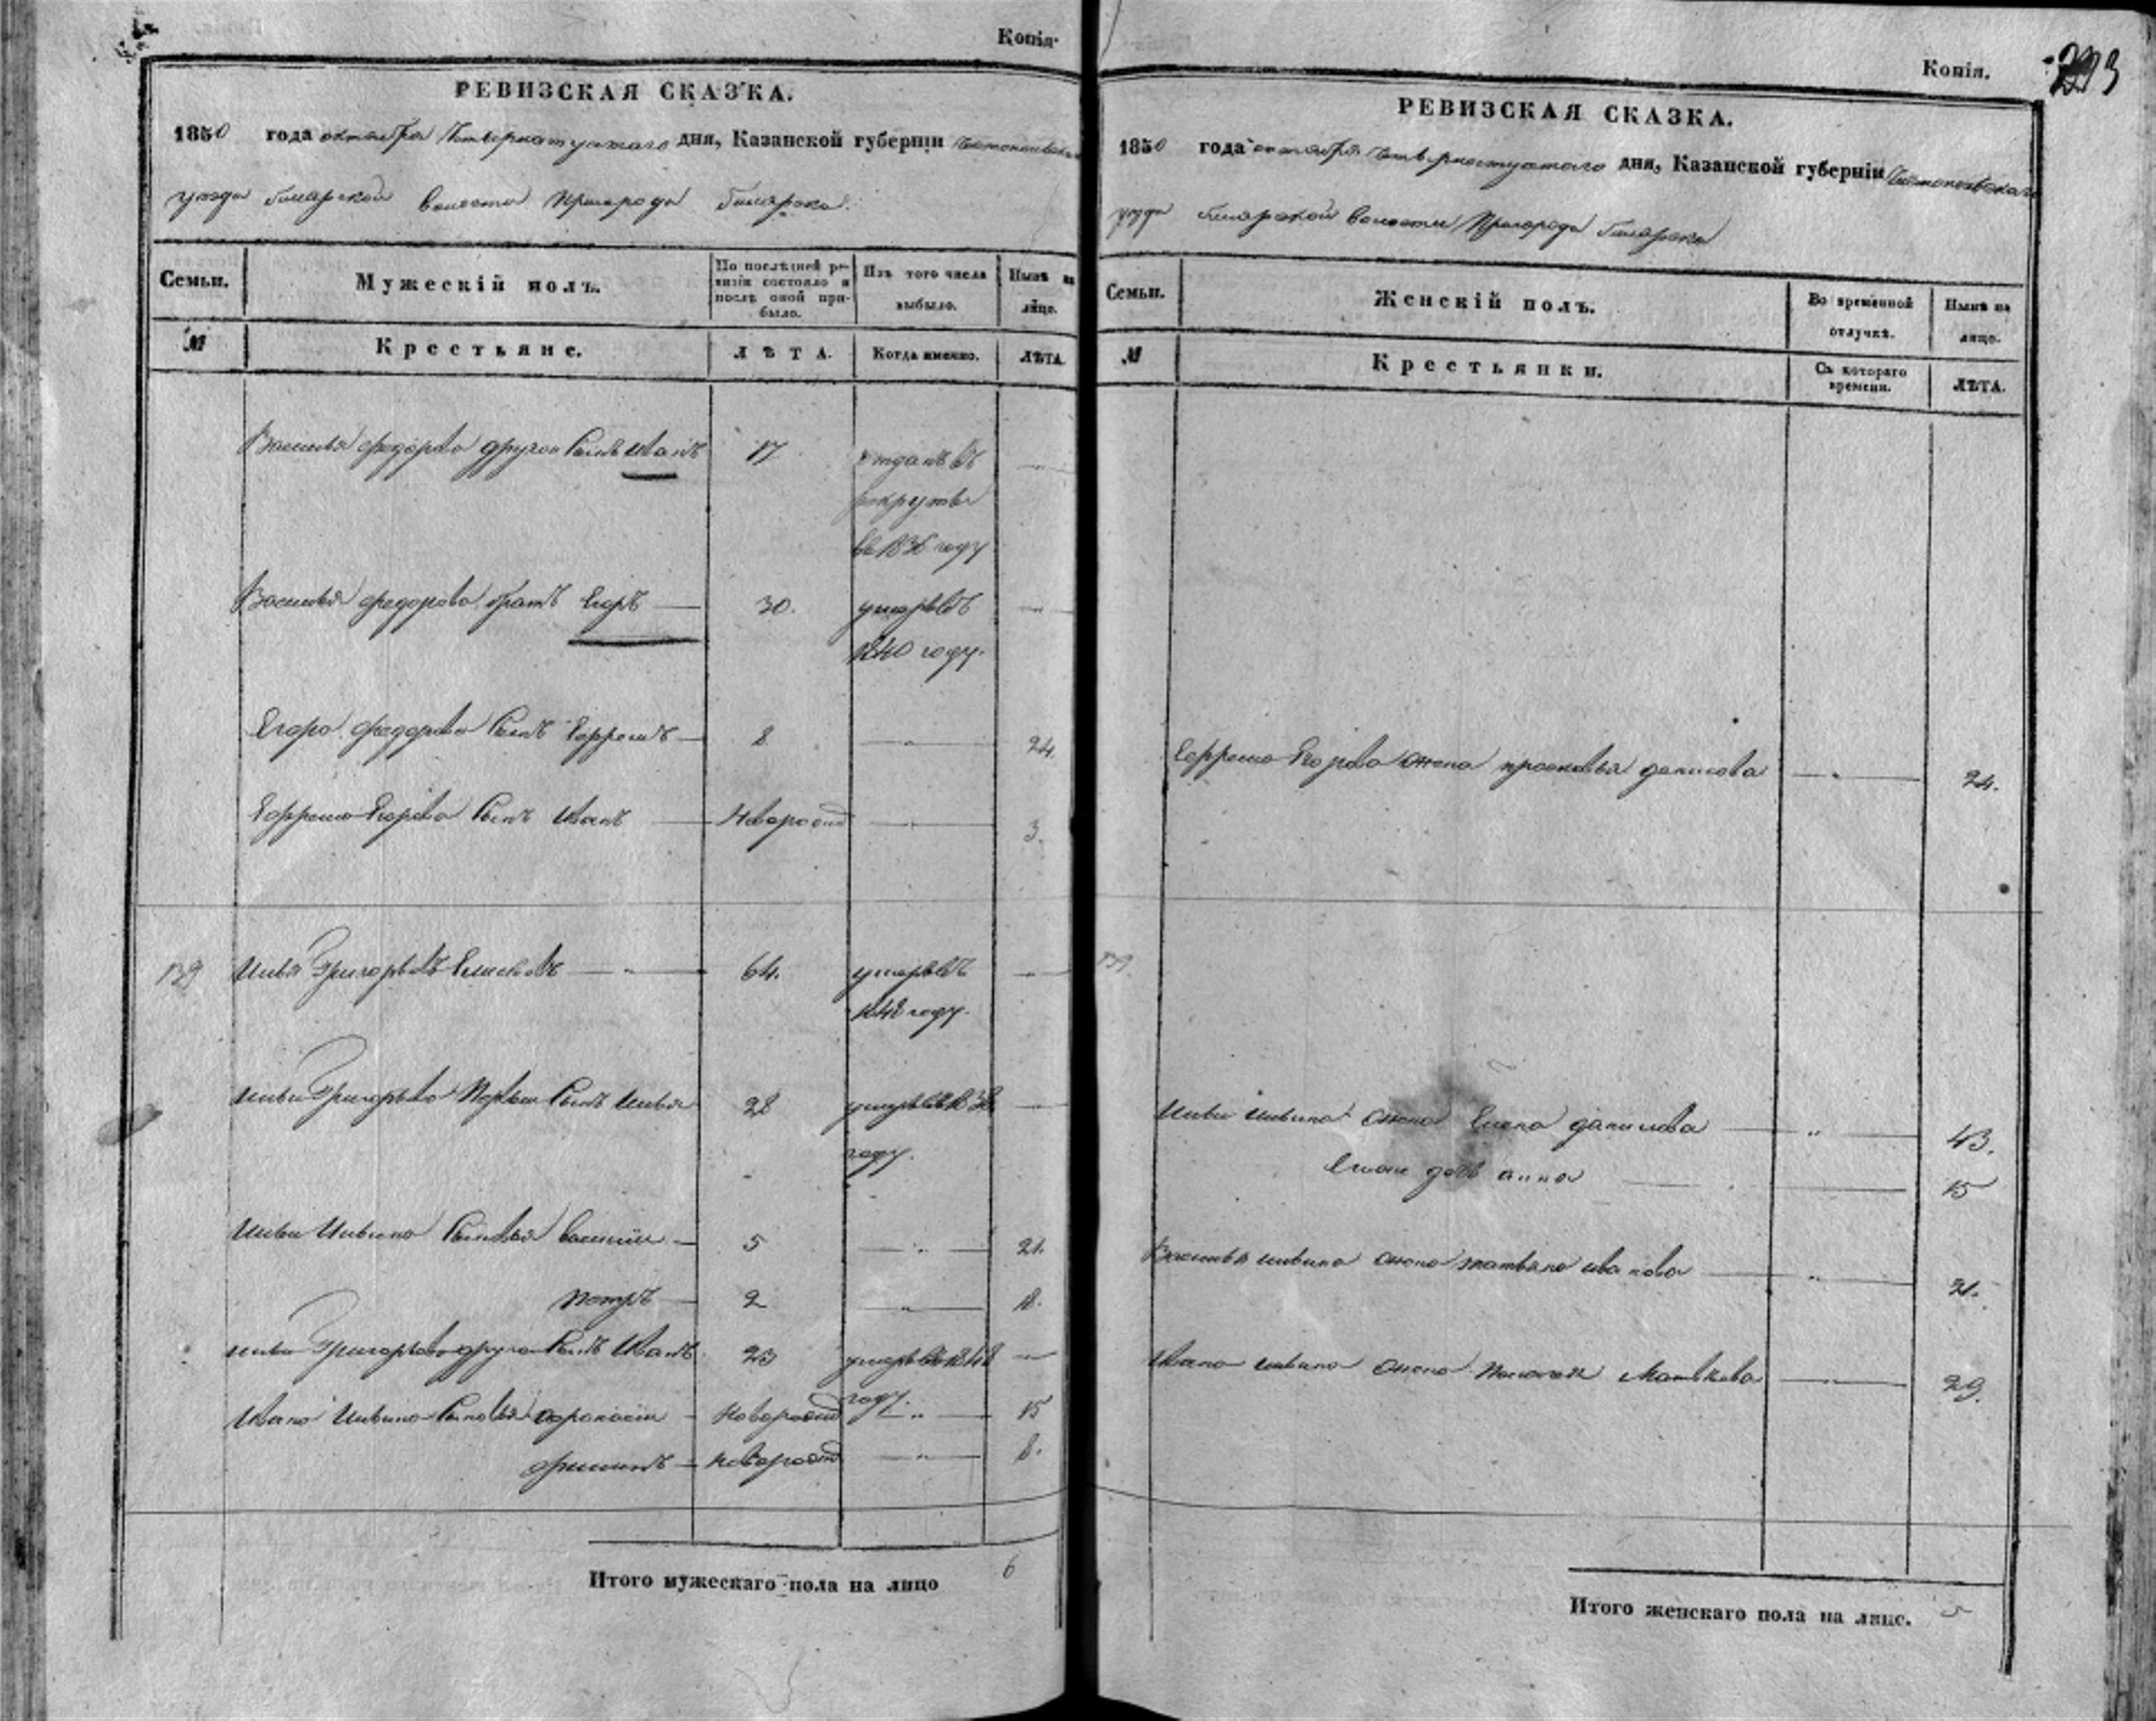 Копія.
РЕВИЗСКАЯ СКАЗКА.
1850 года октября Четвернатцатаго дня, Казанской губерніи Чистопольскаго
уезда билярской волости Пригорода Билярска.
Семьи.
Мужескій полъ.
По послѣдней ре-
визіи состояло и
послѣ оной при-
было.
Изъ того числа
выбыло.
Нынѣ на
лицо.
№
Крестьяне.
ЛѢТА.
Когда именно.
ЛѢТА.
Василья федорова другой Сынъ Иванъ 17
отданъ въ
рекруты
въ 1836 году
Василья федорова братъ Егоръ 30.
умеръ въ
1840 году.
Егора федорова Сынъ Ефремъ 8 24.
Ефрема Егорова Сынъ Иванъ Новорожд 3.
139 Илья Григорьевъ 64. умеръ въ
1848 году.
Ильи Григорьева Первый Сынъ Илья 28 умеръ въ 1838
году.
Ильи Ильина Сыновья Василій 5 21.
Петръ 2 18.
Ильи Григорьева другой Сынъ Иванъ 23 умеръ въ 1848
году.
Ивана Ильина Сыновья Афонасій Новорожд 15
Новорожд 8.
Итого мужескаго пола на лицо 6
Копія.
РЕВИЗСКАЯ СКАЗКА.
1850 года октября Четвернатцатаго дня, Казанской губерніи Чистопольскаго
уезда билярской волости Пригорода билярска
Семьи.
Женскій полъ.
Во временной
отлучкѣ.
Нынѣ на
лицо.
№
Крестьянки.
Съ котораго
времени.
ЛѢТА.
Ефрема Егорова жена прасковья данилова 24.
139
Ильи Ильина жена Елена данилова 43.
Елены дочь анна 15
Василья ильина жена татьяна иванова 21.
Ивана ильина жена Пелагея Матвеева 29.
Итого женскаго пола на лицо. 5